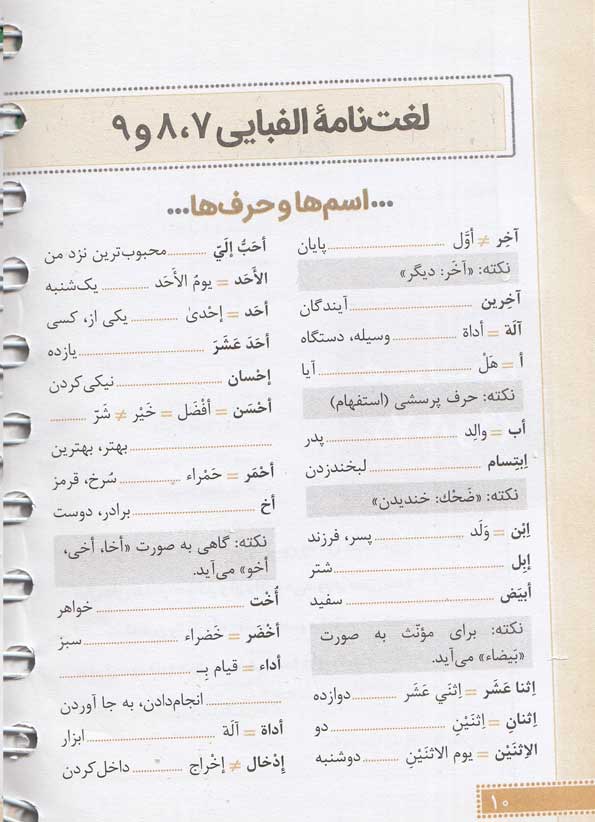 لغت‌نامهٔ الفبایی ۷، ۸ و ۹
...اسم‌ها و حرف‌ها...
آخِر ≠ أوَّل ........ پایان
نکته: «آخَر: دیگر»
آخِرین ........ آیندگان
آلَة = أداة ........ وسیله، دستگاه
أ = هَلْ ........ آیا
نکته: حرف پرسشی (استفهام)
أب = والِد ........ پدر
اِبتِسام ........ لبخندزدن
نکته: «ضَحْك: خندیدن»
اِبْن = وَلَد ........ پسر، فرزند
إبِل ........ شتر
أبیَض ........ سفید
نکته: برای مؤنّث به صورت
«بَیضاء» می‌آید.
اِثنا عَشَر = اِثنَي عَشَر ........ دوازده
اِثنانِ = اِثنَیْنِ ........ دو
الاِثنَیْن = یوم الاثنَیْنِ ........ دوشنبه
أحَبُّ إلَيّ ........ محبوب‌ترین نزد من
الأَحَد = یومُ الأَحَد ........ یک‌شنبه
أحَد = إحْدیٰ ........ یکی از، کسی
أحَدَ عَشَرَ ........ یازده
إحْسان ........ نیکی‌کردن
أحْسَن = أفْضَل = خَیْر ≠ شَرّ ........
........ بهتر، بهترین
أحْمَر = حَمْراء ........ سُرخ، قرمز
أخ ........ برادر، دوست
نکته: گاهی به صورت «أخا، أخی،
أخو» می‌آید.
أُخْت ........ خواهر
أخْضَر = خَضراء ........ سبز
أداء = قیام بِـ ........
........ انجام‌دادن، به جا آوردن
أداة = آلَة ........ ابزار
إدْخال ≠ إخْراج ........ داخل‌کردن
۱۰